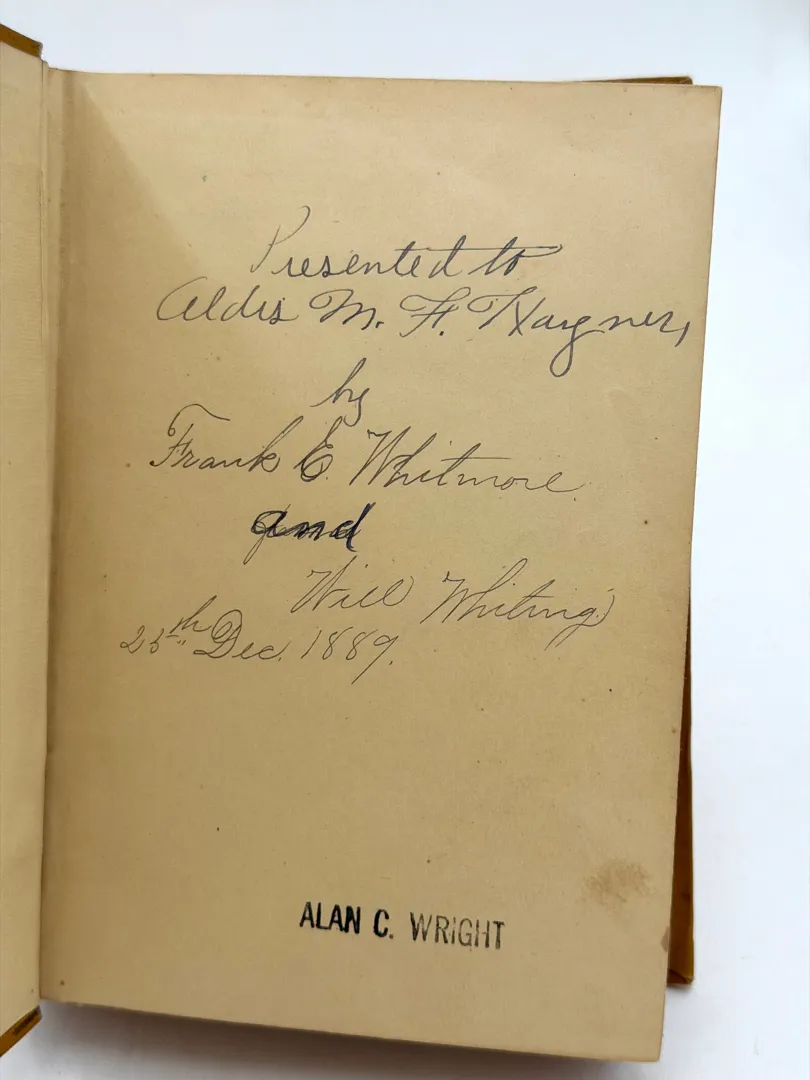 Presented to
Aldis M. F. Wagner,
by
Frank E. Whitmore
and
Will Whiting.
25th Dec. 1889.
ALAN C. WRIGHT